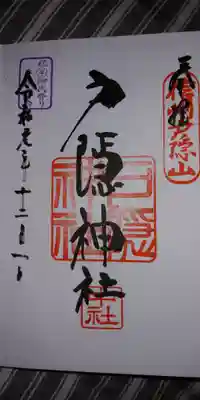 奉拝
信州戸隠山
戸隠神社
戸隠神社
中社
令和元年十二月一日